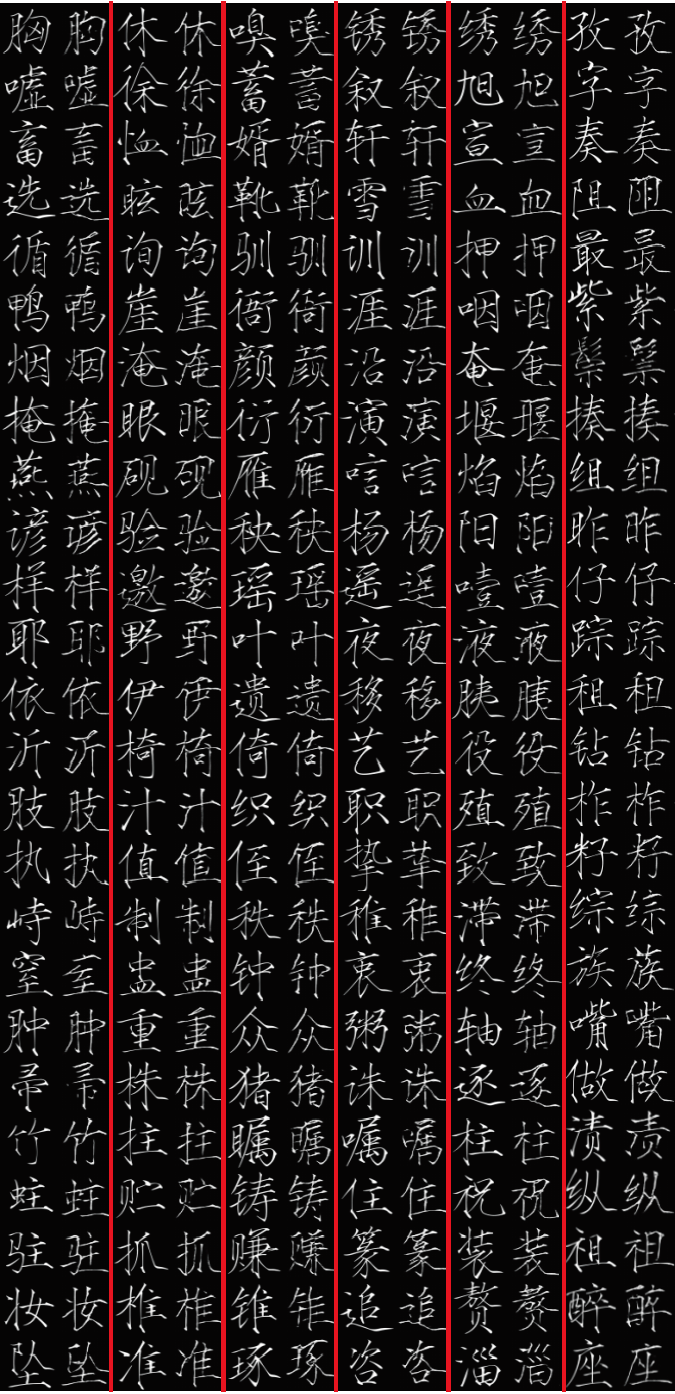 胸 胸 休 休 嗅 嗅 锈 锈 绣 绣 孜 孜
嘘 嘘 徐 徐 蓄 蓄 叙 叙 旭 旭 字 字
畜 畜 恤 恤 婿 婿 轩 轩 宣 宣 奏 奏
选 选 眩 眩 靴 靴 雪 雪 血 血 阻 阻
循 循 询 询 驯 驯 训 训 押 押 最 最
鸭 鸭 崖 崖 衙 衙 涯 涯 咽 咽 紫 紫
烟 烟 淹 淹 颜 颜 沿 沿 奄 奄 鬃 鬃
掩 掩 眼 眼 衍 衍 演 演 堰 堰 揍 揍
燕 燕 砚 砚 雁 雁 唁 唁 焰 焰 组 组
谚 谚 验 验 秧 秧 杨 杨 阳 阳 昨 昨
样 样 邀 邀 瑶 瑶 遥 遥 噎 噎 仔 仔
耶 耶 野 野 叶 叶 夜 夜 液 液 踪 踪
依 依 伊 伊 遗 遗 移 移 胰 胰 租 租
沂 沂 椅 椅 倚 倚 艺 艺 役 役 钻 钻
肢 肢 汁 汁 织 织 职 职 殖 殖 柞 柞
执 执 值 值 侄 侄 挚 挚 致 致 籽 籽
峙 峙 制 制 秩 秩 稚 稚 滞 滞 综 综
窒 窒 盅 盅 钟 钟 衷 衷 终 终 族 族
肿 肿 重 重 众 众 粥 粥 轴 轴 嘴 嘴
帚 帚 株 株 猪 猪 诛 诛 逐 逐 做 做
竹 竹 拄 拄 瞩 瞩 嘱 嘱 柱 柱 渍 渍
蛀 蛀 贮 贮 铸 铸 住 住 祝 祝 纵 纵
驻 驻 抓 抓 赚 赚 篆 篆 装 装 祖 祖
妆 妆 椎 椎 锥 锥 追 追 赘 赘 醉 醉
坠 坠 准 准 琢 琢 咨 咨 淄 淄 座 座